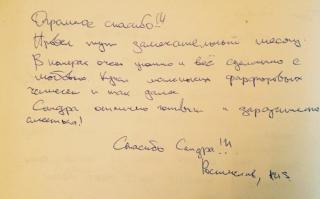 Огромное спасибо!!!
Провел тут замечательный месяц.
В номерах очен уютно и всё сделанно с
любовью. Куча маленьких фарфоровых
чашечек и так далее
Сандра отлично готовит и заразительно
смеётся!
Спасибо Сандра!!!
Ростислав,